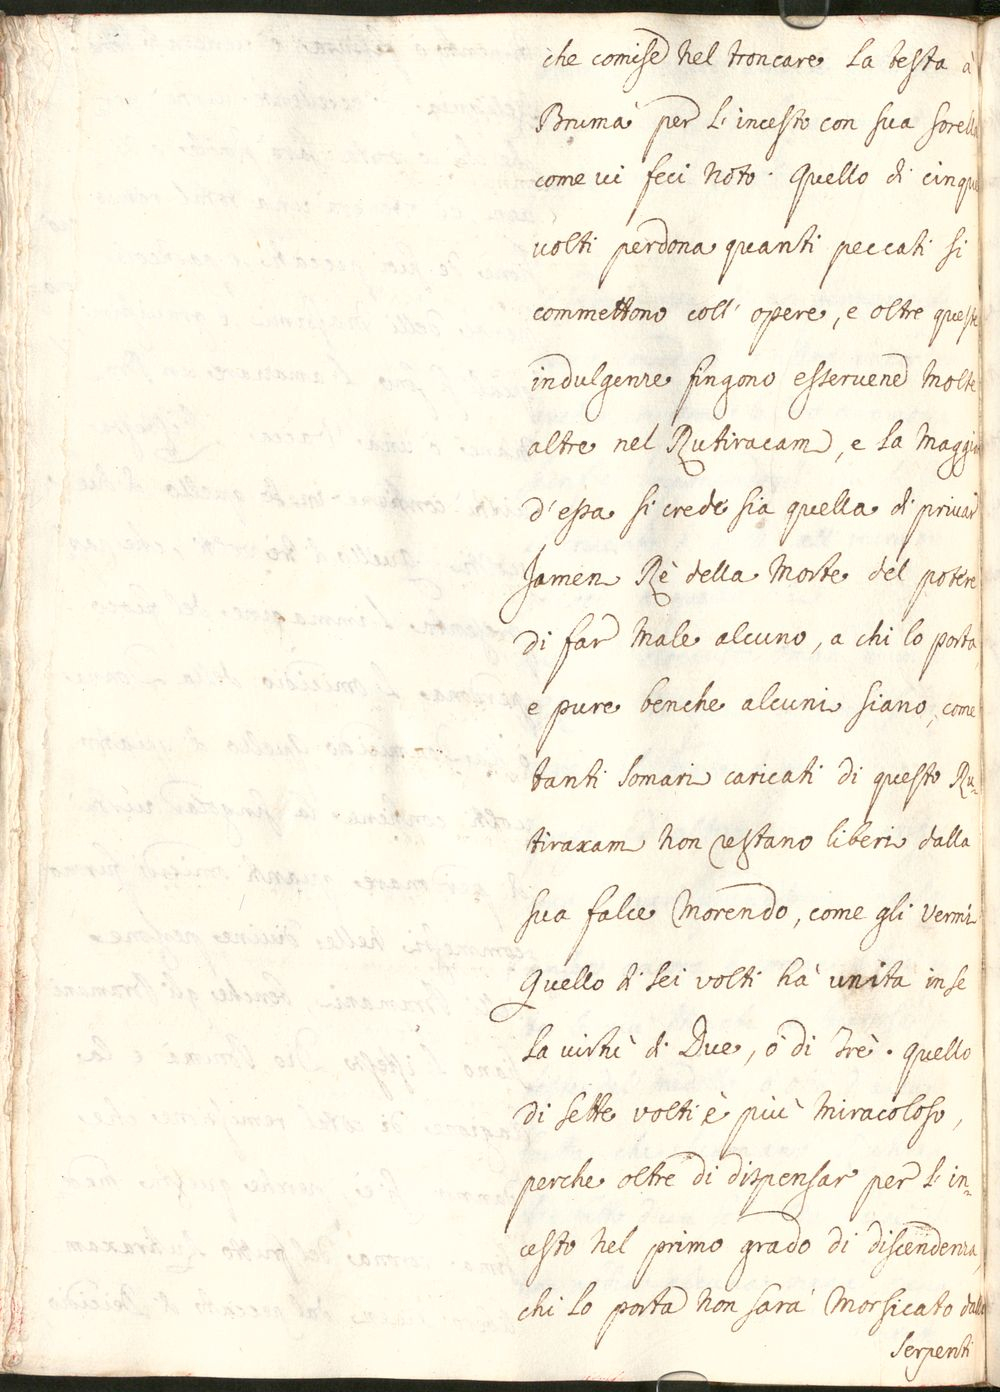 che comise nel troncare la testa à
Brumà per l'incesto con sua sorella
come vi feci noto. Quello di cinque
volti perdona quanti peccati si
commettono coll'opere, e oltre queste
indulgenze fingono esservene molte
altre nel Rutiracam, e la maggior
d'essa si crede sia quella di privar
Jamen Rè della Morte del potere
di far male alcuno, a chi lo porta,
e pure benche alcuni siano, come
tanti somari caricati di questo Ru-
tiraxam non restano liberi dalla
sua falce morendo, come gli vermi
Quello di sei volti hà unita in se
la virtù di Due, ò di Trè. Quello
di sette volti è più miracoloso,
perche oltre di dispensar per l'in-
cesto nel primo grado di discendenza,
chi lo porta non sarà morsicato dalli
serpenti